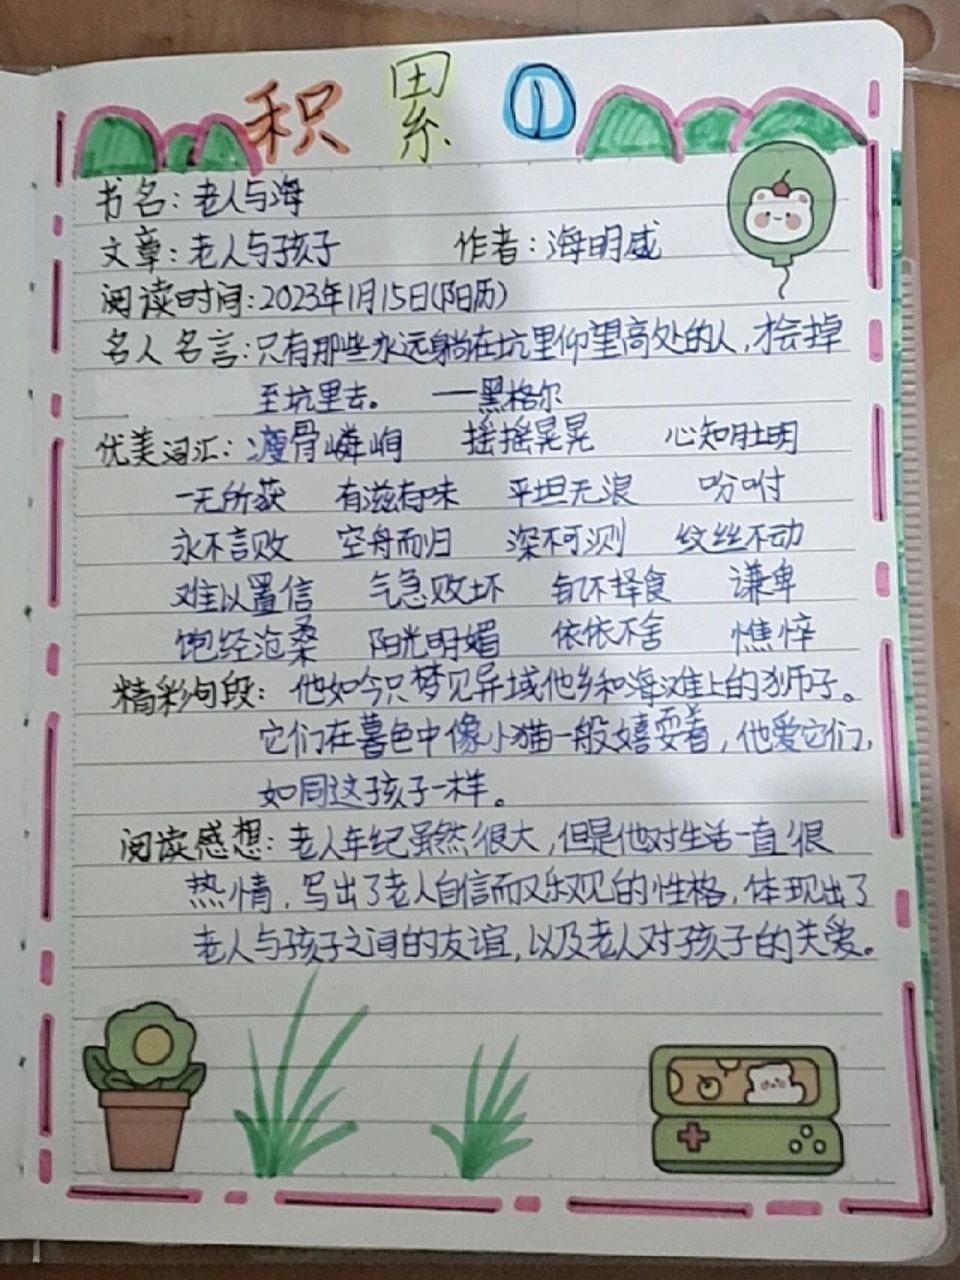 积累①
书名：老人与海
文章：老人与孩子 作者：海明威
阅读时间：2023年1月15日(阳历)
名人名言：只有那些永远躺在坑里仰望高处的人，才会掉
至坑里去。 ——黑格尔
优美词汇：瘦骨嶙峋 摇摇晃晃 心知肚明
一无所获 有滋有味 平坦无浪 吩咐
永不言败 空舟而归 深不可测 纹丝不动
难以置信 气急败坏 饥不择食 谦卑
饱经沧桑 阳光明媚 依依不舍 憔悴
精彩句段：他如今只梦见异域他乡和海滩上的狮子。
它们在暮色中像小猫一般嬉耍着，他爱它们，
如同这孩子一样。
阅读感想：老人年纪虽然很大，但是他对生活一直很
热情，写出了老人自信而又乐观的性格，体现出了
老人与孩子之间的友谊，以及老人对孩子的关爱。